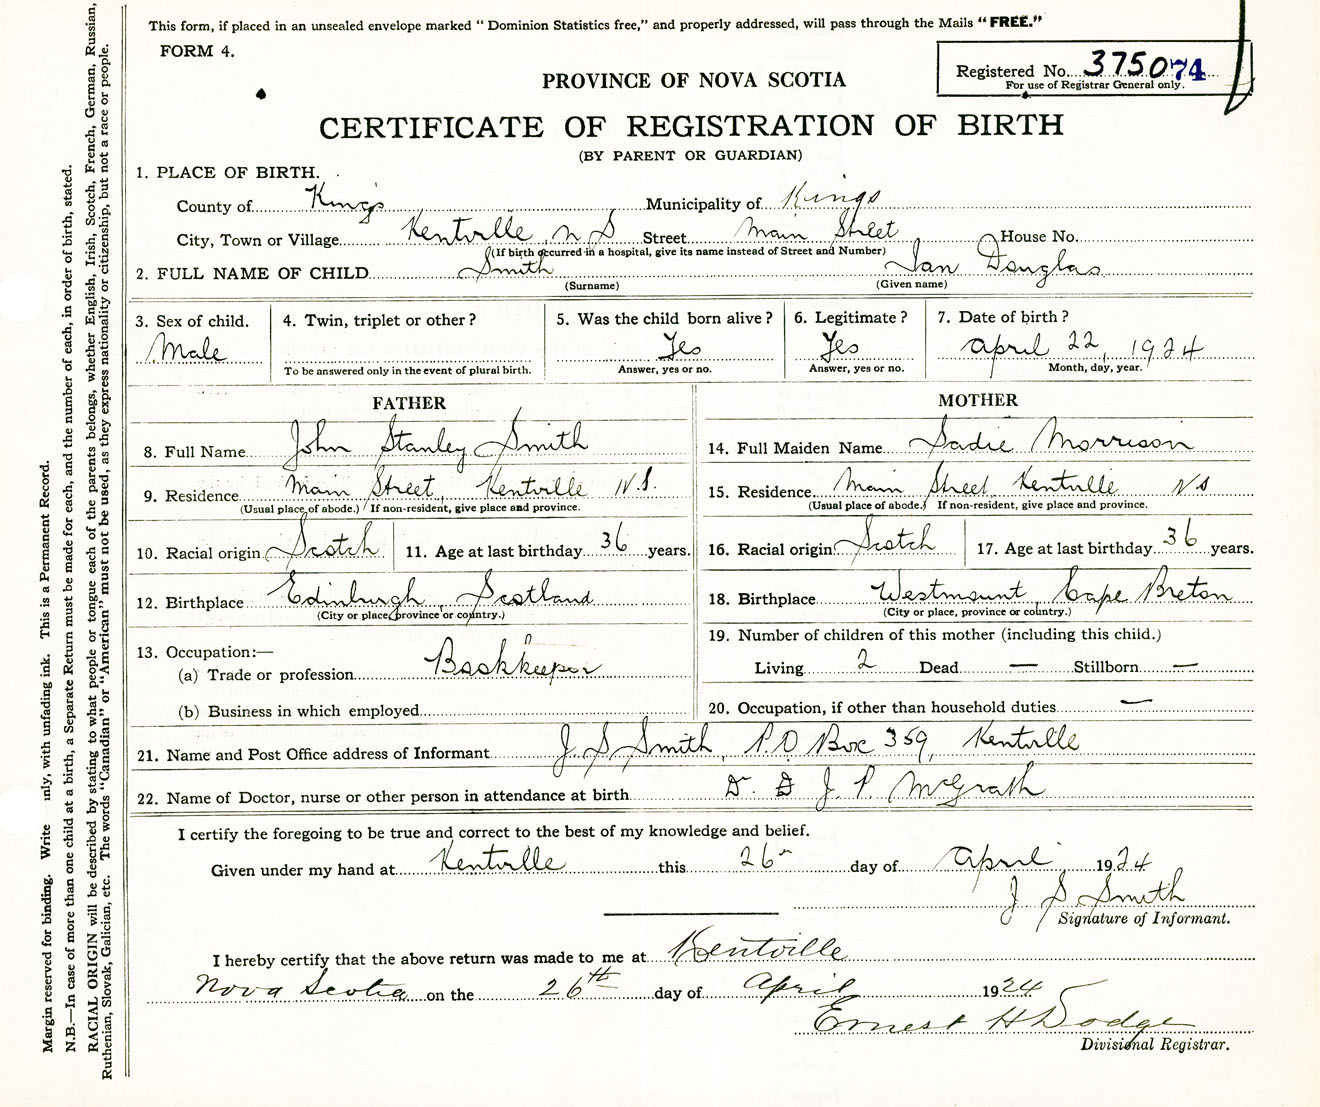 This form, if placed in an unsealed envelope marked “ Dominion Statistics free,” and properly addressed, will pass through the Mails “ FREE.”
FORM 4.
Registered No. 375074
For use of Registrar General only.
PROVINCE OF NOVA SCOTIA
CERTIFICATE OF REGISTRATION OF BIRTH
(BY PARENT OR GUARDIAN)
1. PLACE OF BIRTH.
County of King's Municipality of Kings
City, Town or Village Kentville, N S Street Main Street House No.
(If birth occurred in a hospital, give its name instead of Street and Number)
2. FULL NAME OF CHILD Smith Ian Douglas
(Surname) (Given name)
3. Sex of child. 4. Twin, triplet or other ? 5. Was the child born alive ? 6. Legitimate ? 7. Date of birth ?
Male Yes Yes April 22, 1924
To be answered only in the event of plural birth. Answer, yes or no. Answer, yes or no. Month, day, year.
FATHER
8. Full Name John Stanley Smith
9. Residence Main Street, Kentville N.S.
(Usual place of abode.) If non-resident, give place and province.
10. Racial origin Scotch 11. Age at last birthday 36 years.
12. Birthplace Edinburgh, Scotland
(City or place, province or country.)
13. Occupation:—
(a) Trade or profession Bookkeeper
(b) Business in which employed
MOTHER
14. Full Maiden Name Sadie Morrison
15. Residence Main Street, Kentville N S
(Usual place of abode.) If non-resident, give place and province.
16. Racial origin Scotch 17. Age at last birthday 36 years.
18. Birthplace Westmount, Cape Breton
(City or place, province or country.)
19. Number of children of this mother (including this child.)
Living 2 Dead — Stillborn —
20. Occupation, if other than household duties —
21. Name and Post Office address of Informant J. S Smith, P.O Box 359, Kentville
22. Name of Doctor, nurse or other person in attendance at birth Dr. J. P. McGrath
I certify the foregoing to be true and correct to the best of my knowledge and belief.
Given under my hand at Kentville this 26 day of April 1924
J S Smith
Signature of Informant.
I hereby certify that the above return was made to me at Kentville
Nova Scotia on the 26th day of April 1924
Ernest H Dodge
Divisional Registrar.
Margin reserved for binding. Write nly, with unfading ink. This is a Permanent Record.
N.B.—In case of more than one child at a birth, a Separate Return must be made for each, and the number of each, in order of birth, stated.
RACIAL ORIGIN will be described by stating to what people or tongue each of the parents belongs, whether English, Irish, Scotch, French, German, Russian,
Ruthenian, Slovak, Galician, etc. The words “Canadian” or “American” must not be used, as they express nationality or citizenship, but not a race or people.